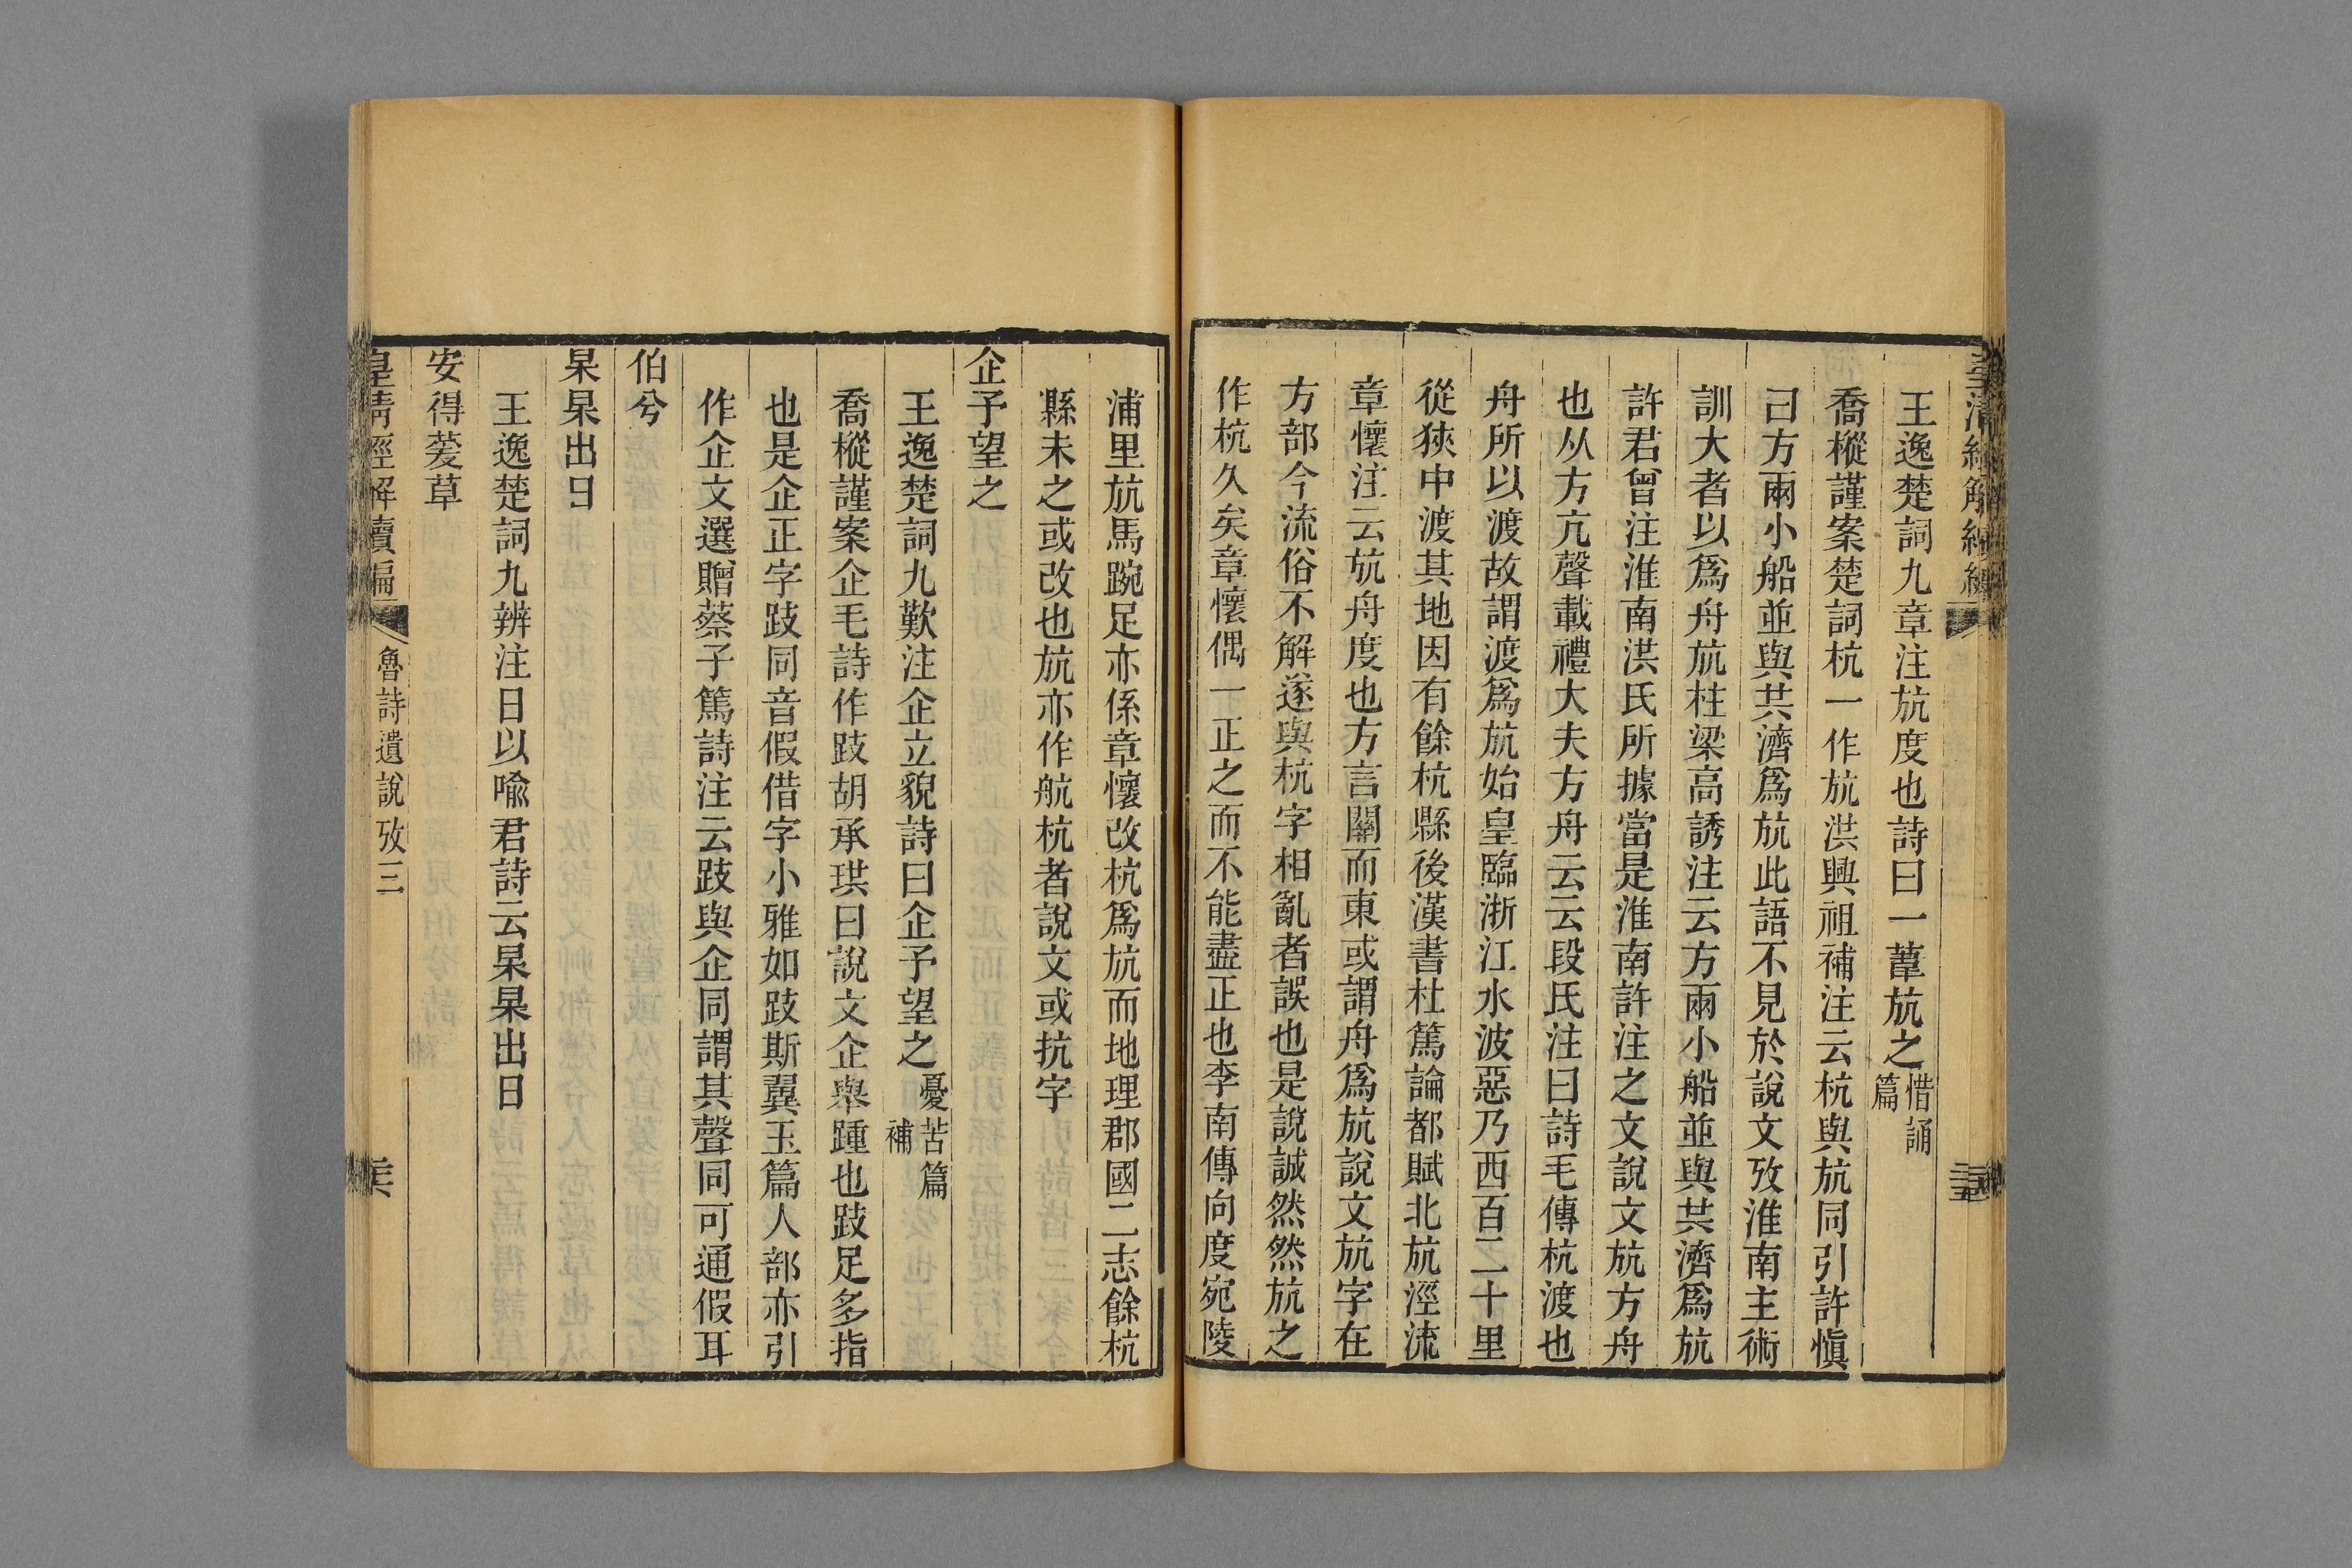 王逸楚詞九章注斻度也詩曰一葦斻之惜誦篇
喬樅謹案楚詞杭一作斻洪興祖補注云杭與斻同引許慎
曰方兩小船並與共濟爲斻此語不見於說文攷淮南主術
訓大者以爲舟斻柱梁高誘注云方兩小船並與共濟爲斻
許君曾注淮南洪氏所據當是淮南許注之文說文斻方舟
也从方亢聲載禮大夫方舟云云段氏注曰詩毛傳杭渡也
舟所以渡故謂渡爲斻始皇臨浙江水波惡乃西百二十里
從狹中渡其地因有餘杭縣後漢書杜篤論都賦北斻涇流
章懷注云斻舟度也方言關而東或謂舟爲斻說文斻字在
方部今流俗不解遂與杭字相亂者誤也是說誠然然斻之
作杭久矣章懷偶一正之而不能盡正也李南傳向度宛陵
浦里斻馬踠足亦係章懷改杭爲斻而地理郡國二志餘杭
縣未之或改也斻亦作航杭者說文或抗字
企予望之
王逸楚詞九歎注企立貌詩曰企予望之憂苦篇補
喬樅謹案企毛詩作跂胡承珙曰說文企舉踵也跂足多指
也是企正字跂同音假借字小雅如跂斯翼玉篇人部亦引
作企文選贈蔡子篤詩注云跂與企同謂其聲同可通假耳
伯兮
杲杲出日
王逸楚詞九辨注日以喻君詩云杲杲出日
安得萲草
皇清經解續編
魯詩遺說攷三